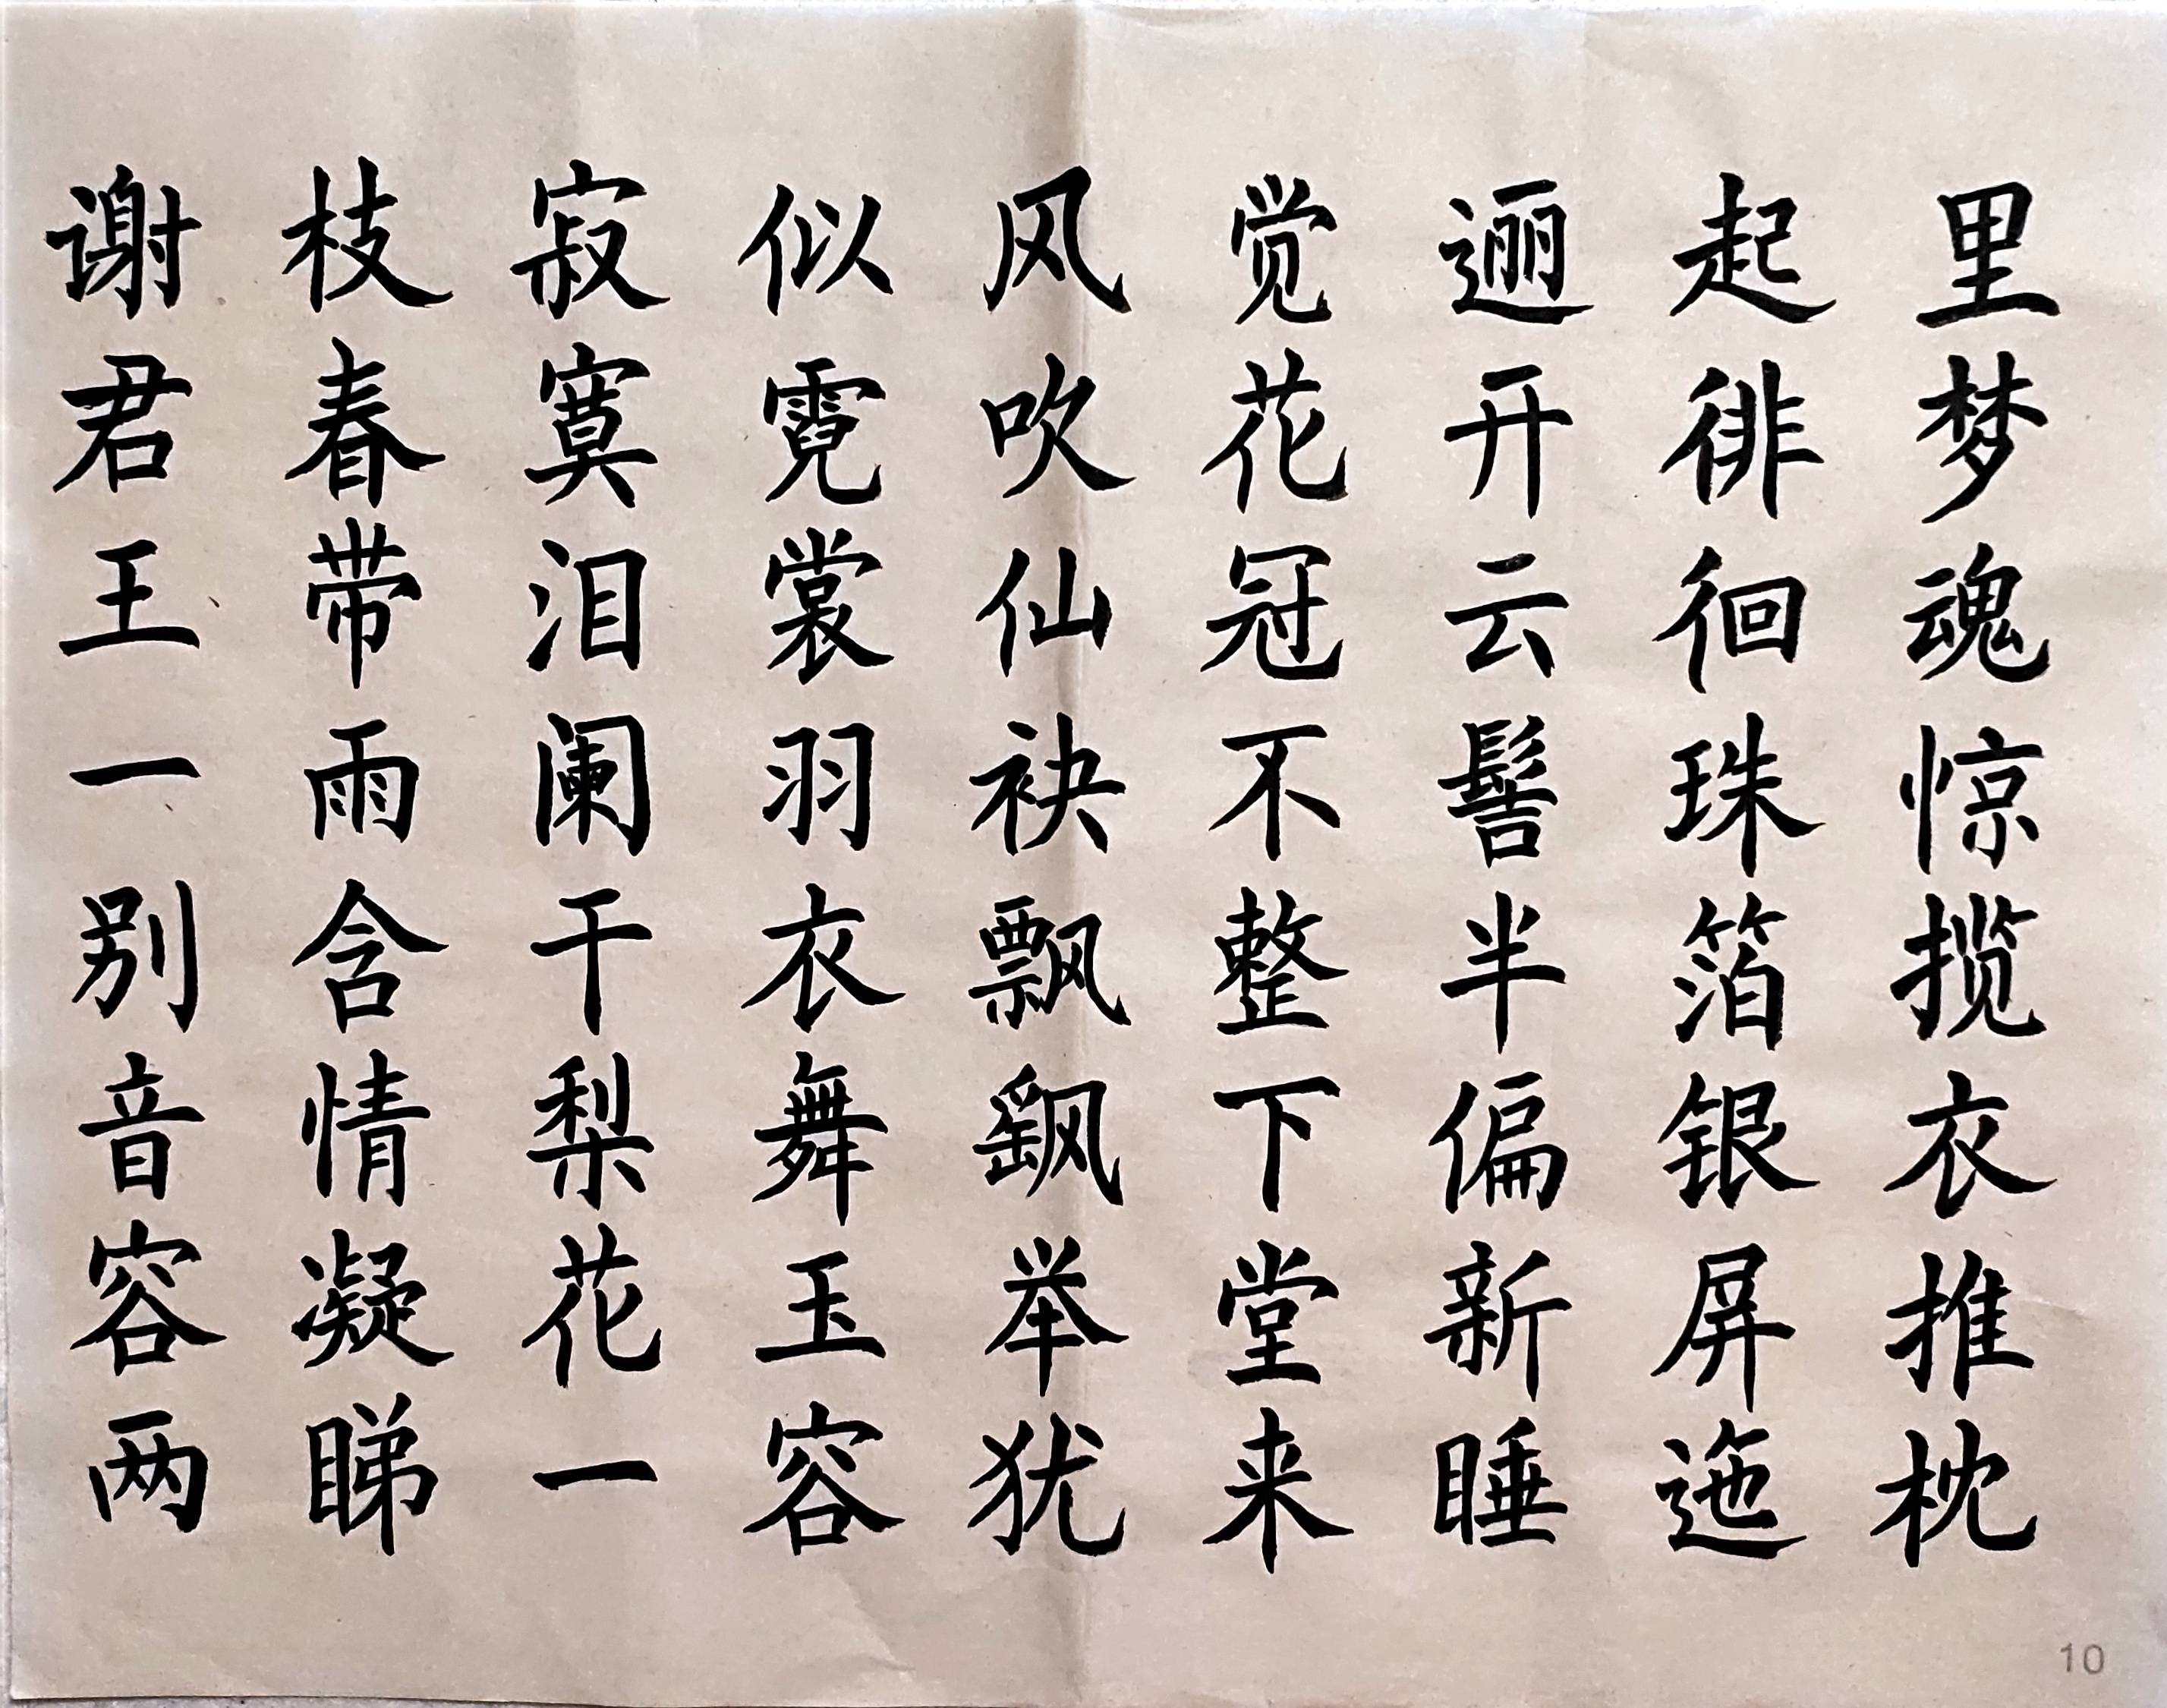 里梦魂惊揽衣推枕
起徘徊珠箔银屏迤
逦开云髻半偏新睡
觉花冠不整下堂来
风吹仙袂飘飖举犹
似霓裳羽衣舞玉容
寂寞泪阑干梨花一
枝春带雨含情凝睇
谢君王一别音容两
10